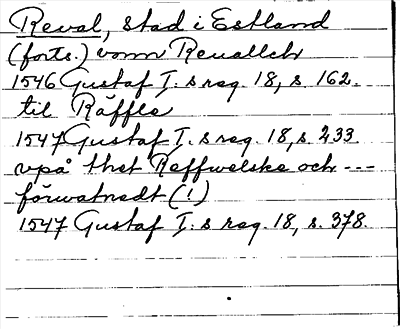 Reval, stad i Estland
(forts.) vonn Reuallch
1546 Gustaf I:s reg. 18, s. 162.
til Räffle
1547 Gustaf I:s reg. 18, s. 233
vpå thet Reffwelske och ---
förwatnedt (!)
1547 Gustaf I:s reg. 18, s. 378.